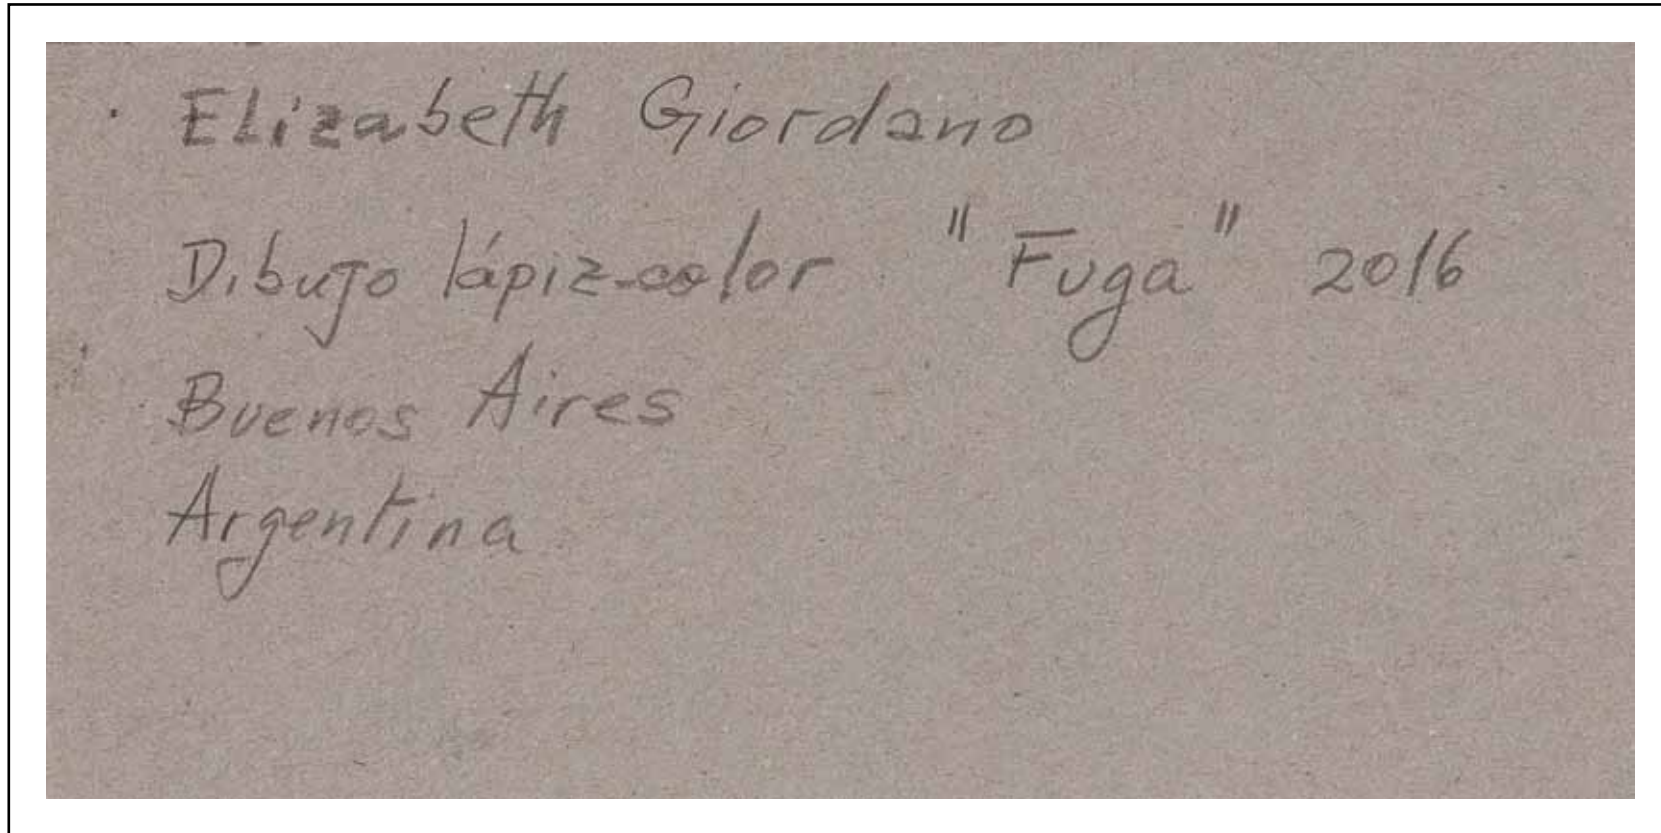 Elizabeth Giordano
Dibujo lápiz-color "Fuga" 2016
Buenos Aires
Argentina